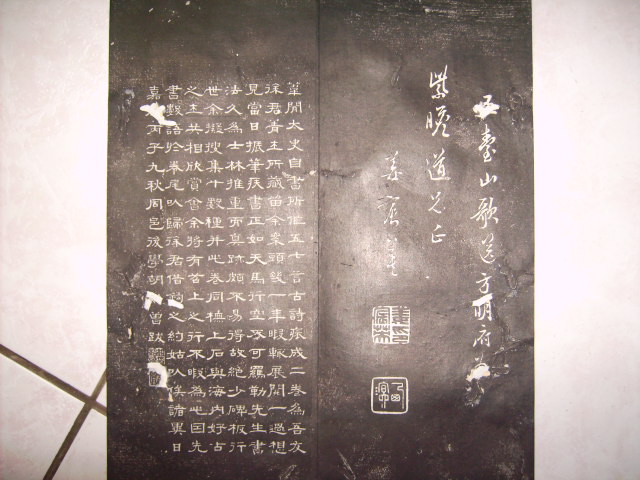 五臺山歌送方明府
紫瞻道兄正
姜宸英
葦間太史自書所作五七言古詩裝成二卷為吾友
徐君青主所藏留余案頭一年暇輒展閱一過想
見當日振筆疾書正如天馬行空不可羈勒先生書
法久為士林推重而真跡頗不易得故絕少碑板行
世余擬搜集十數種并此卷同上石與海內好古
之士共相欣賞會余將有苕上之行不暇為此因先
書數語於卷尾以歸徐君借之約姑以俟諸異日
嘉丙子九秋同邑後學胡曾跋